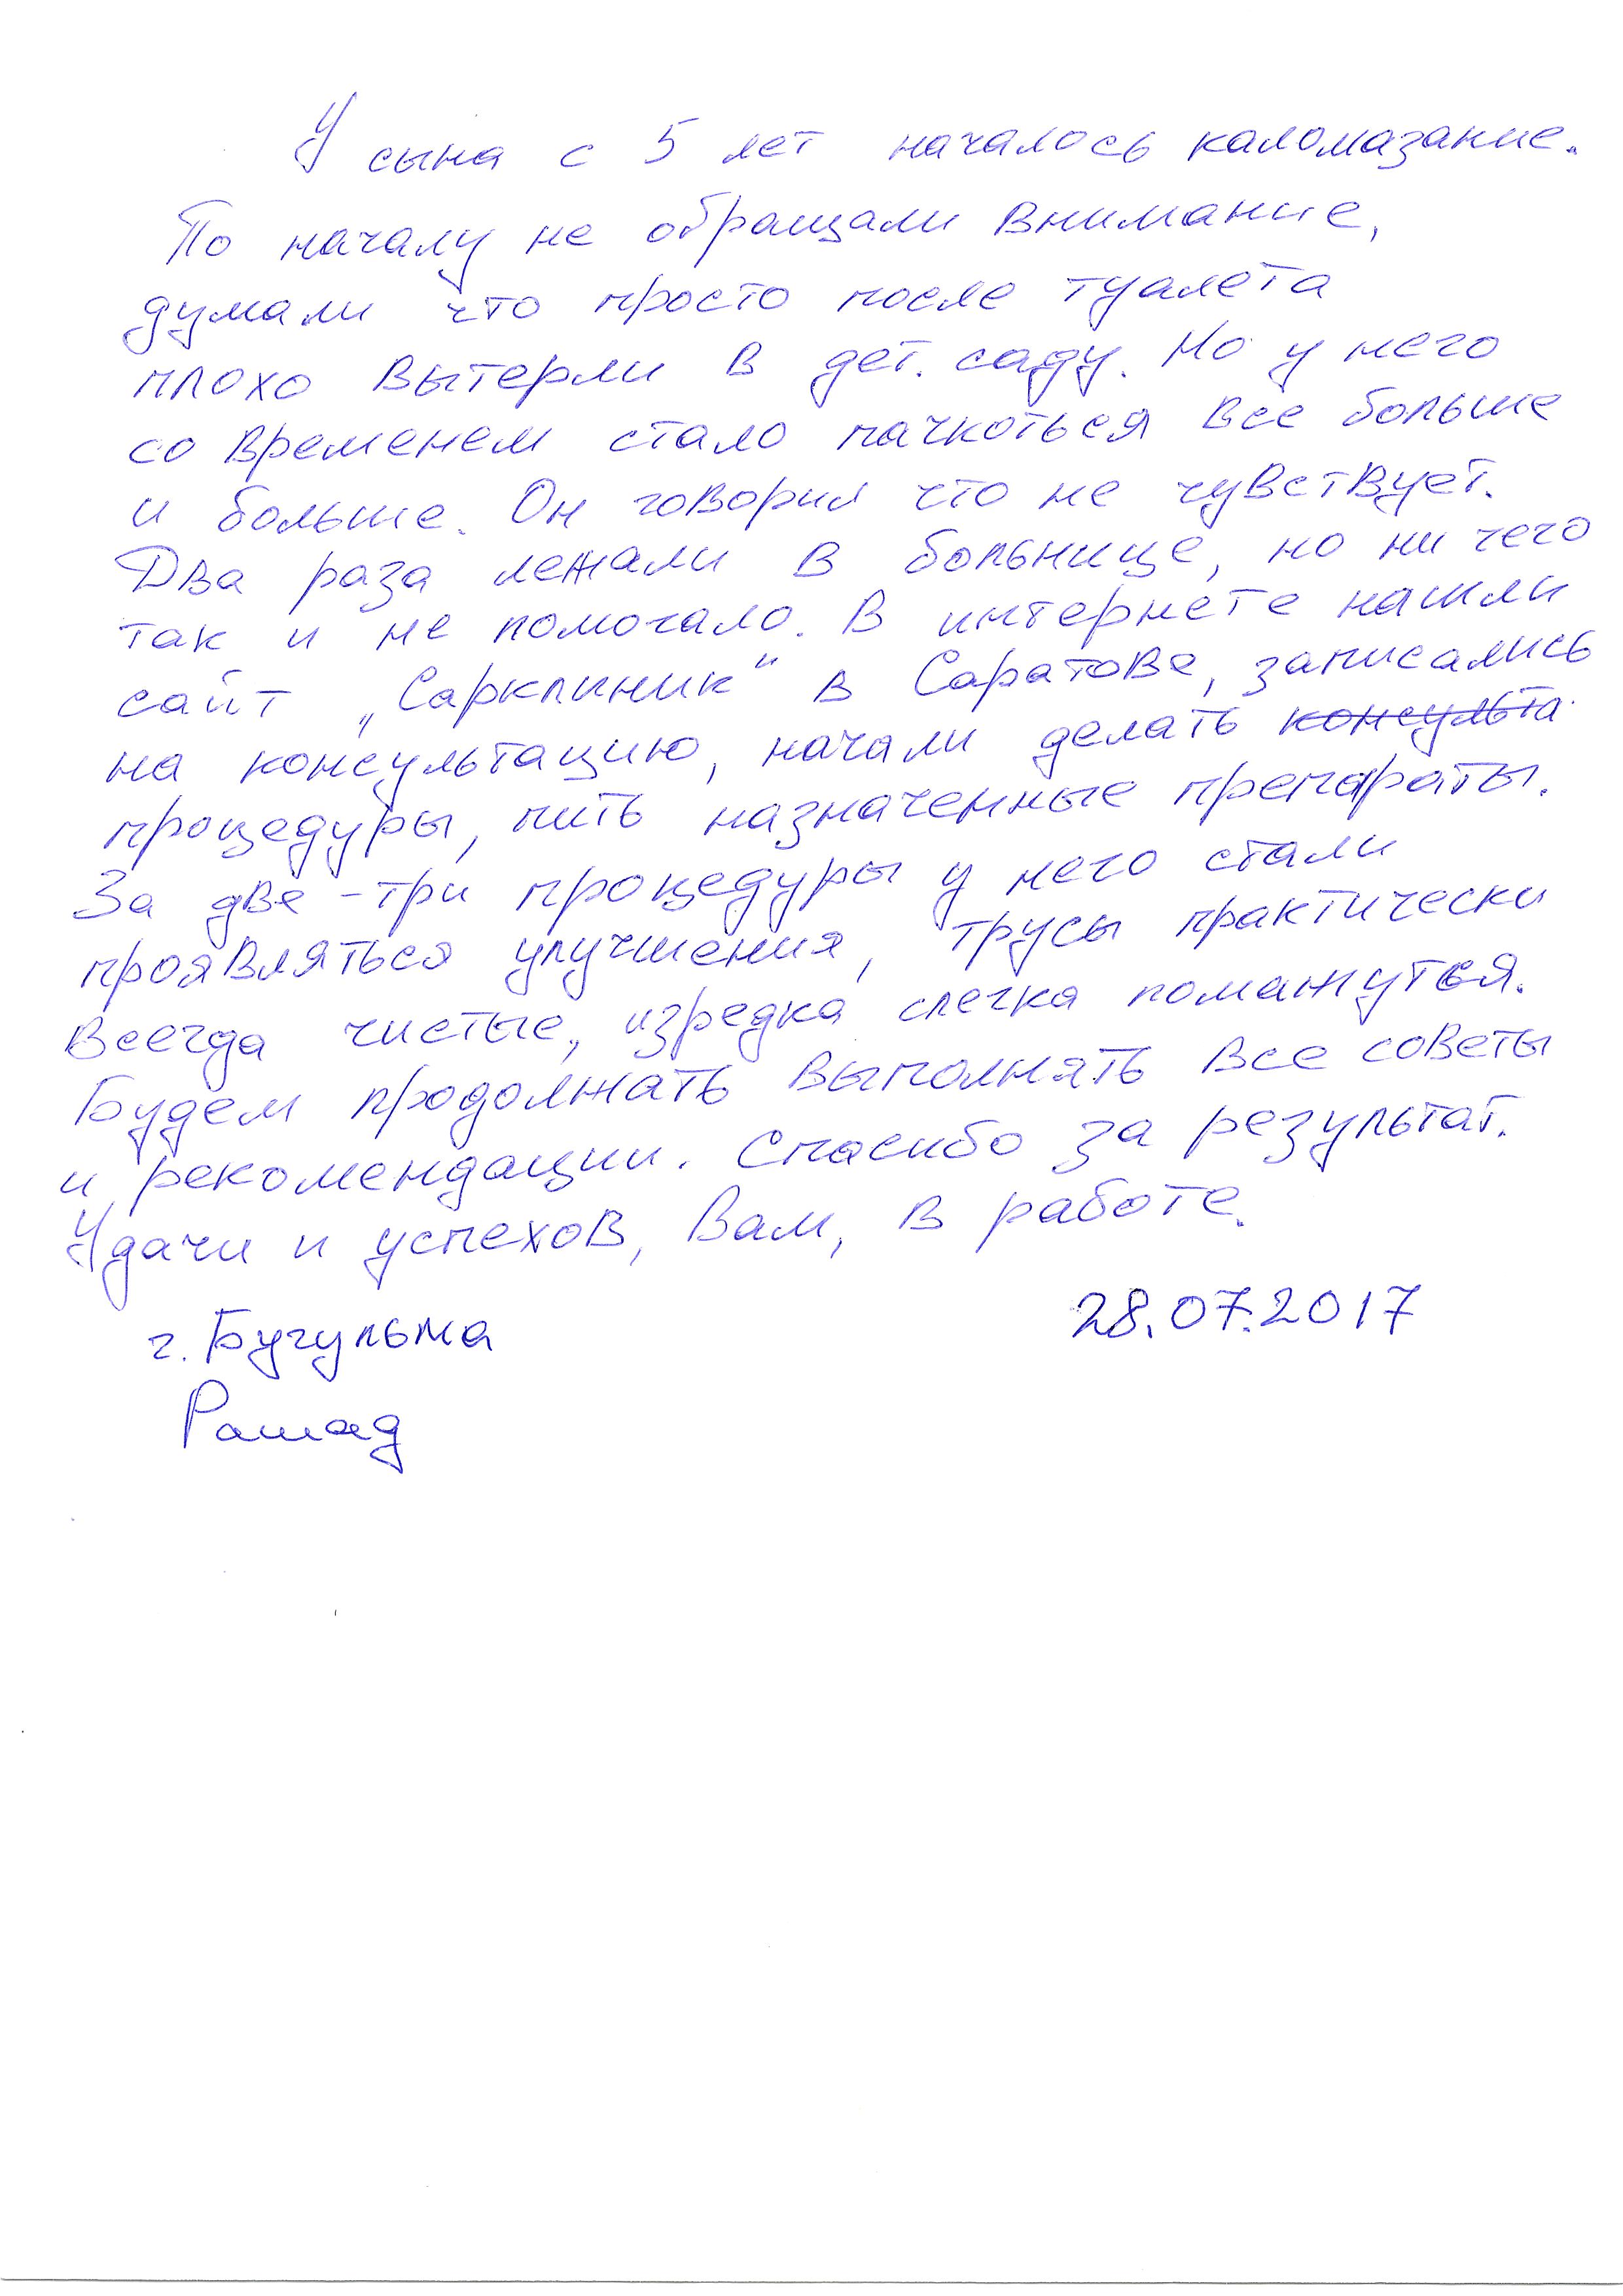 У сына с 5 лет началось каломазание.
По началу не обращали внимание,
думали что просто после туалета
плохо вытерли в дет. саду. Но у него
со временем стало пачкоться все больше
и больше. Он говорил что не чувствует.
Два раза лежали в больнице, но ни чего
так и не помогало. В интернете нашли
сайт „Сарклиник" в Саратове, записались
на консультацию, начали делать консульта
процедуры, пить назначенные препараты.
За две-три процедуры у него стали
проявляться улучшения, трусы практически
всегда чистые, изредка слегка помажуться.
Будем продолжать выполнять все советы
и рекомендации. Спасибо за результат.
Удачи и успехов, Вам, в работе.
г. Бугульма 28.07.2017
Рашад